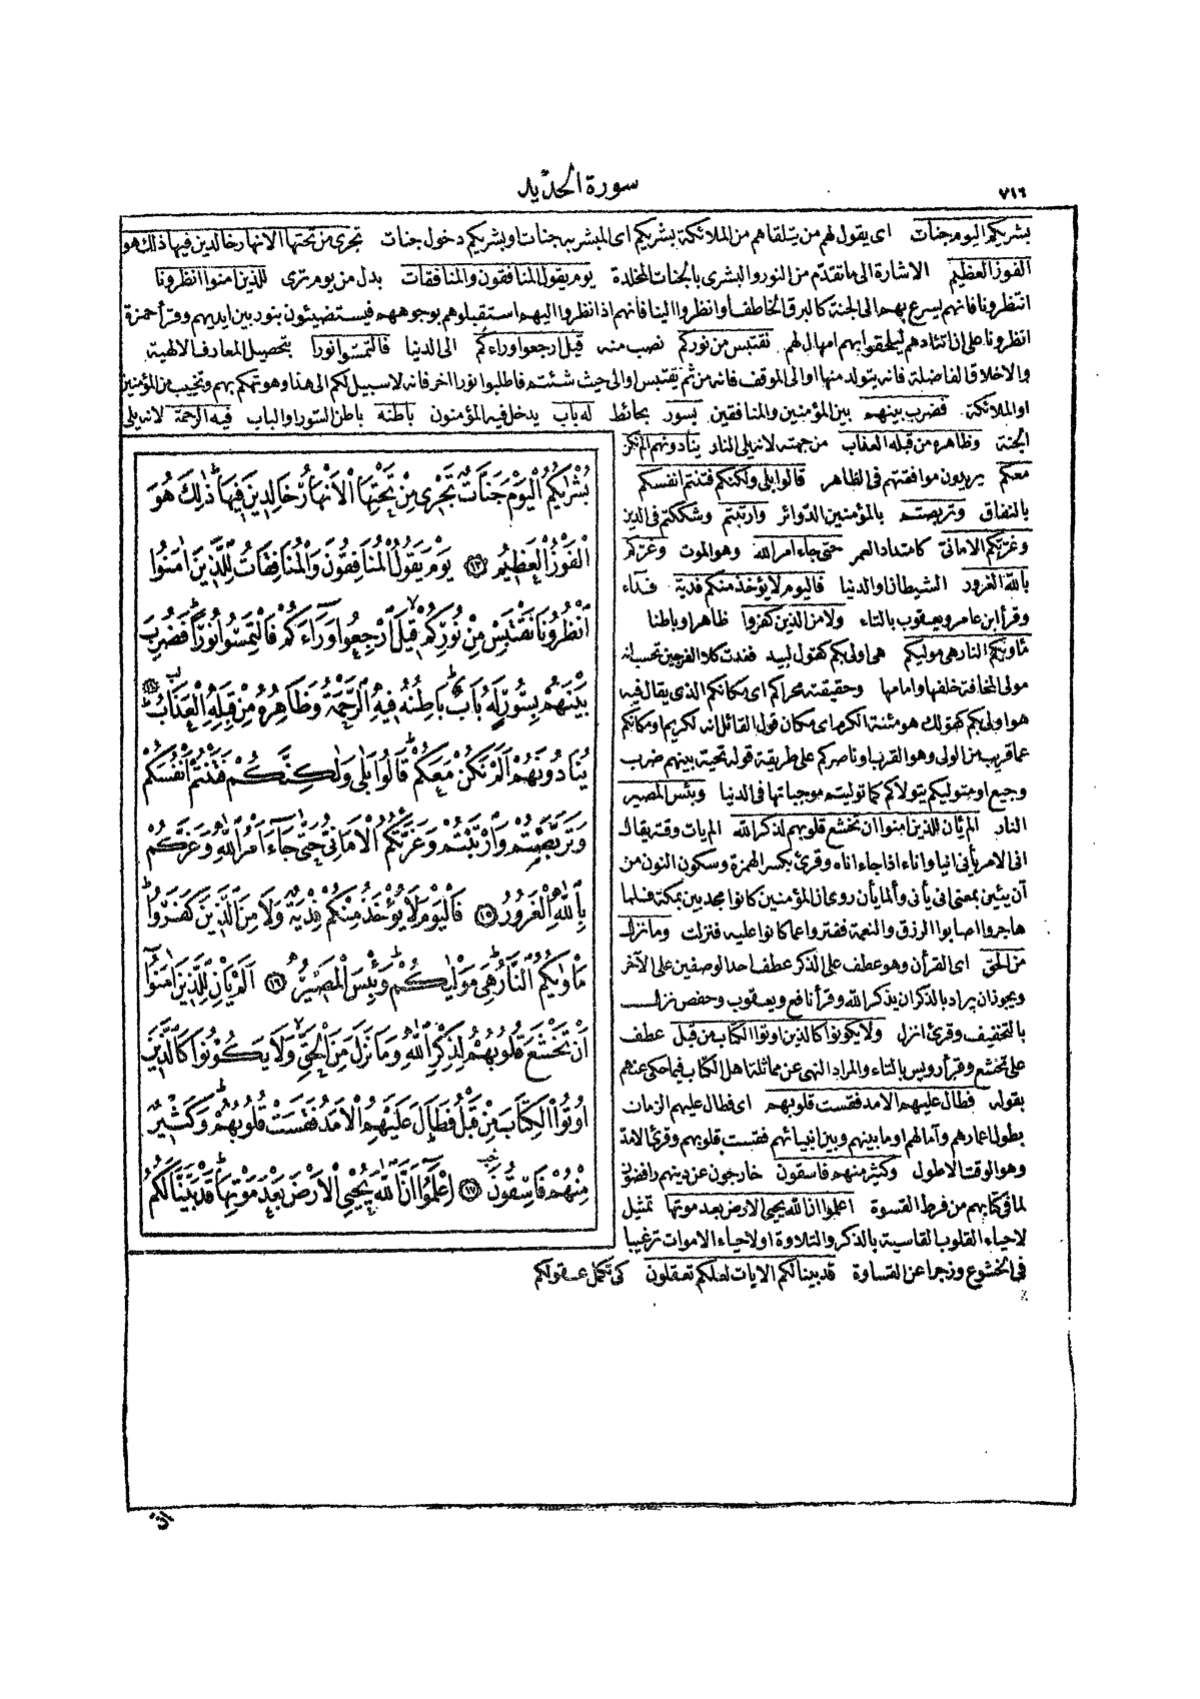 ٧١٦
سورة الحديد
بشريكم اليوم جنات اى يقول لهم من يتلقاهم من الملائكة بشريكم اى المبشر به جنات او بشريكم دخول جنات تجرى من تحتها الانهار خالدين فيها ذلك هو
الفوز العظيم الاشارة الى ما تقدّم من النور والبشرى بالجنات المخلدة يوم يقول المنافقون والمنافقات بدل من يوم ترى للذين امنوا انظرونا
انتظرونا فانهم يسرع بهم الى الجنة كالبرق الخاطف او انظروا الينا فانهم اذا نظروا اليهم استقبلوهم بوجوههم فيستضيئون بنور بين ايديهم وقرأ حمزة
انظرونا على ان اتئادهم ليلحقوا بهم امهال لهم نقتبس من نوركم نصب منه قيل ارجعوا وراءكم الى الدنيا فالتمسوا نورا بتحصيل المعارف الالهية
والاخلاق الفاضلة فانه يتولد منها او الى الموقف فانه من ثم يقتبس او الى حيث شئتم فاطلبوا نورا اخر فانه لاسبيل لكم الى هذا وهو تهكم بهم وتخييب من المؤمنين
او الملائكة فضرب بينهم بين المؤمنين والمنافقين بسور بحائط له باب يدخل فيه المؤمنون باطنه باطن السور او الباب فيه الرحمة لانه يلى
الجنة وظاهره من قبله العذاب من جهته لانه يلى النار ينادونهم الم نكن
معكم يريدون موافقتهم فى الظاهر قالوا بلى ولكنكم فتنتم انفسكم
بالنفاق وتربصتم بالمؤمنين الدوائر وارتبتم وشككتم فى الدين
وغرتكم الامانى كامتداد العمر حتى جاء امر الله وهو الموت وغركم
بالله الغرور الشيطان او الدنيا فاليوم لا يؤخذ منكم فدية فداء
وقرأ ابن عامر ويعقوب بالتاء ولا من الذين كفروا ظاهرا وباطنا
مأويكم النار هى موليكم هى اولى بكم كقول لبيد فغدت كلا الفرجين تحسب انه
مولى المخافة خلفها وامامها وحقيقته محراكم اى مكانكم الذى يقال فيه
هو اولى بكم كقولك هو مئنة الكرم اى مكان قول القائل انه لكريم او مكانكم
عما قريب من الولى وهو القرب او ناصركم على طريقة قوله تحية بينهم ضرب
وجيع او متوليكم يتولاكم كما توليتم موجباتها فى الدنيا وبئس المصير
النار الم يأن للذين امنوا ان تخشع قلوبهم لذكر الله الم يات وقته يقال
انى الامر يأنى انيا واناء اذا جاء اناه وقرئ بكسر الهمزة وسكون النون من
آن يئين بمعنى انى يأنى وألما يأن روى ان المؤمنين كانوا مجدبين بمكة فلما
هاجروا اصابوا الرزق والنعمة ففتروا عما كانوا عليه فنزلت وما نزل
من الحق اى القرأن وهو عطف على الذكر عطف احد الوصفين على الآخر
ويجوز ان يراد بالذكر ان يذكر الله وقرأ نافع ويعقوب وحفص نزل
بالتخفيف وقرئ انزل ولا يكونوا كالذين اوتوا الكتاب من قبل عطف
على تخشع وقرأ رويس بالتاء والمراد النهى عن مماثلة اهل الكتاب فيما حكى عنهم
بقوله فطال عليهم الامد فقست قلوبهم اى فطال عليهم الزمان
بطول اعمارهم وآمالهم او ما بينهم وبين انبيائهم فقست قلوبهم وقرئ الامدّ
وهو الوقت الاطول وكثير منهم فاسقون خارجون عن دينهم رافضون
لما فى كتابهم من فرط القسوة اعلموا ان الله يحيى الارض بعد موتها تمثيل
لاحياء القلوب القاسية بالذكر والتلاوة او لاحياء الاموات ترغيبا
فى الخشوع وزجرا عن القساوة قد بينا لكم الايات لعلكم تعقلون كى تكمل عقولكم
بُشْرٰيكُمُ الْيَوْمَ جَنَّاتٌ تَجْرٖى مِنْ تَحْتِهَا الْاَنْهَارُ خَالِدٖينَ فٖيهَا ذٰلِكَ هُوَ
الْفَوْزُ الْعَظٖيمُ ﴿١٣﴾ يَوْمَ يَقُولُ الْمُنَافِقُونَ وَالْمُنَافِقَاتُ لِلَّذٖينَ اٰمَنُوا
انْظُرُونَا نَقْتَبِسْ مِنْ نُورِكُمْ قٖيلَ ارْجِعُوا وَرَاءَكُمْ فَالْتَمِسُوا نُورًا فَضُرِبَ
بَيْنَهُمْ بِسُورٍ لَهُ بَابٌ بَاطِنُهُ فٖيهِ الرَّحْمَةُ وَظَاهِرُهُ مِنْ قِبَلِهِ الْعَذَابُ ﴿١٤﴾
يُنَادُونَهُمْ اَلَمْ نَكُنْ مَعَكُمْ قَالُوا بَلٰى وَلٰكِنَّكُمْ فَتَنْتُمْ اَنْفُسَكُمْ
وَتَرَبَّصْتُمْ وَارْتَبْتُمْ وَغَرَّتْكُمُ الْاَمَانِىُّ حَتّٰى جَاءَ اَمْرُ اللّٰهِ وَغَرَّكُمْ
بِاللّٰهِ الْغَرُورُ ﴿١٥﴾ فَالْيَوْمَ لَا يُؤْخَذُ مِنْكُمْ فِدْيَةٌ وَلَا مِنَ الَّذٖينَ كَفَرُوا
مَأْوٰيكُمُ النَّارُ هِىَ مَوْلٰيكُمْ وَبِئْسَ الْمَصٖيرُ ﴿١٦﴾ اَلَمْ يَأْنِ لِلَّذٖينَ اٰمَنُوا
اَنْ تَخْشَعَ قُلُوبُهُمْ لِذِكْرِ اللّٰهِ وَمَا نَزَلَ مِنَ الْحَقِّ وَلَا يَكُونُوا كَالَّذٖينَ
اُوتُوا الْكِتَابَ مِنْ قَبْلُ فَطَالَ عَلَيْهِمُ الْاَمَدُ فَقَسَتْ قُلُوبُهُمْ وَكَثٖيرٌ
مِنْهُمْ فَاسِقُونَ ﴿١٧﴾ اِعْلَمُوا اَنَّ اللّٰهَ يُحْيِى الْاَرْضَ بَعْدَ مَوْتِهَا قَدْ بَيَّنَّا لَكُمُ